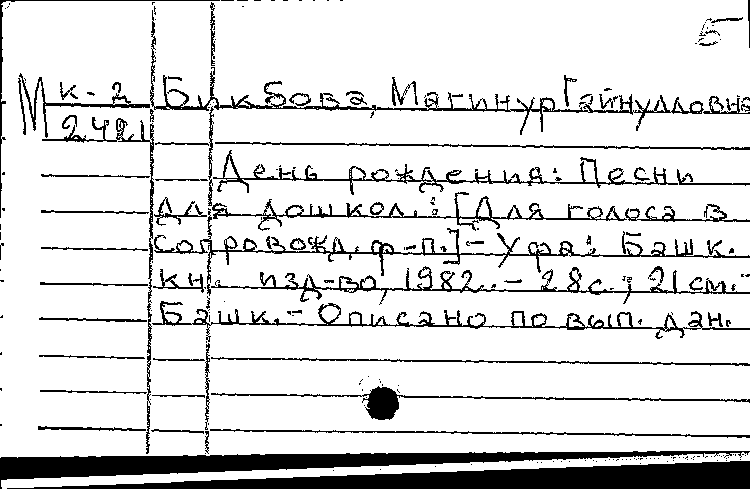 5
М К-2 Бикбова, Магинур Гайнулловна
2421
День рождения: Песни
для дошкол.: [Для голоса в
сопровожд. ф-п.] - Уфа: Башк.
кн. изд-во, 1982. - 28 с.; 21 см. -
Башк. - Описано по вып. дан.